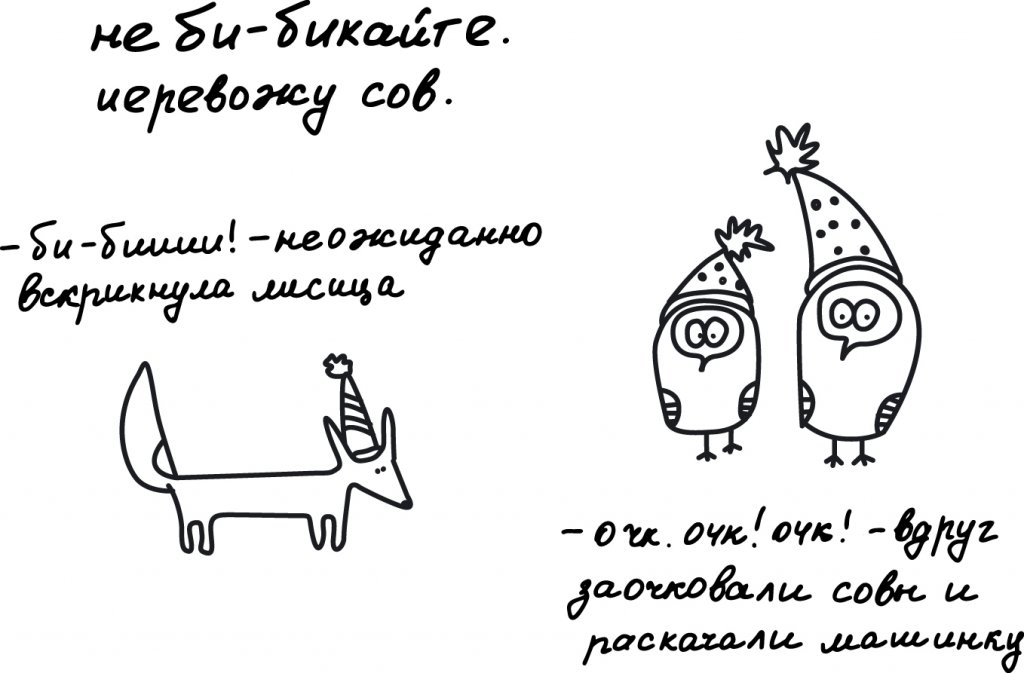 не би-бикайте.
перевожу сов.
- би-биии! - неожиданно
вскрикнула лисица
- очк. очк! очк! - вдруг
заочковали совы и
раскачали машинку